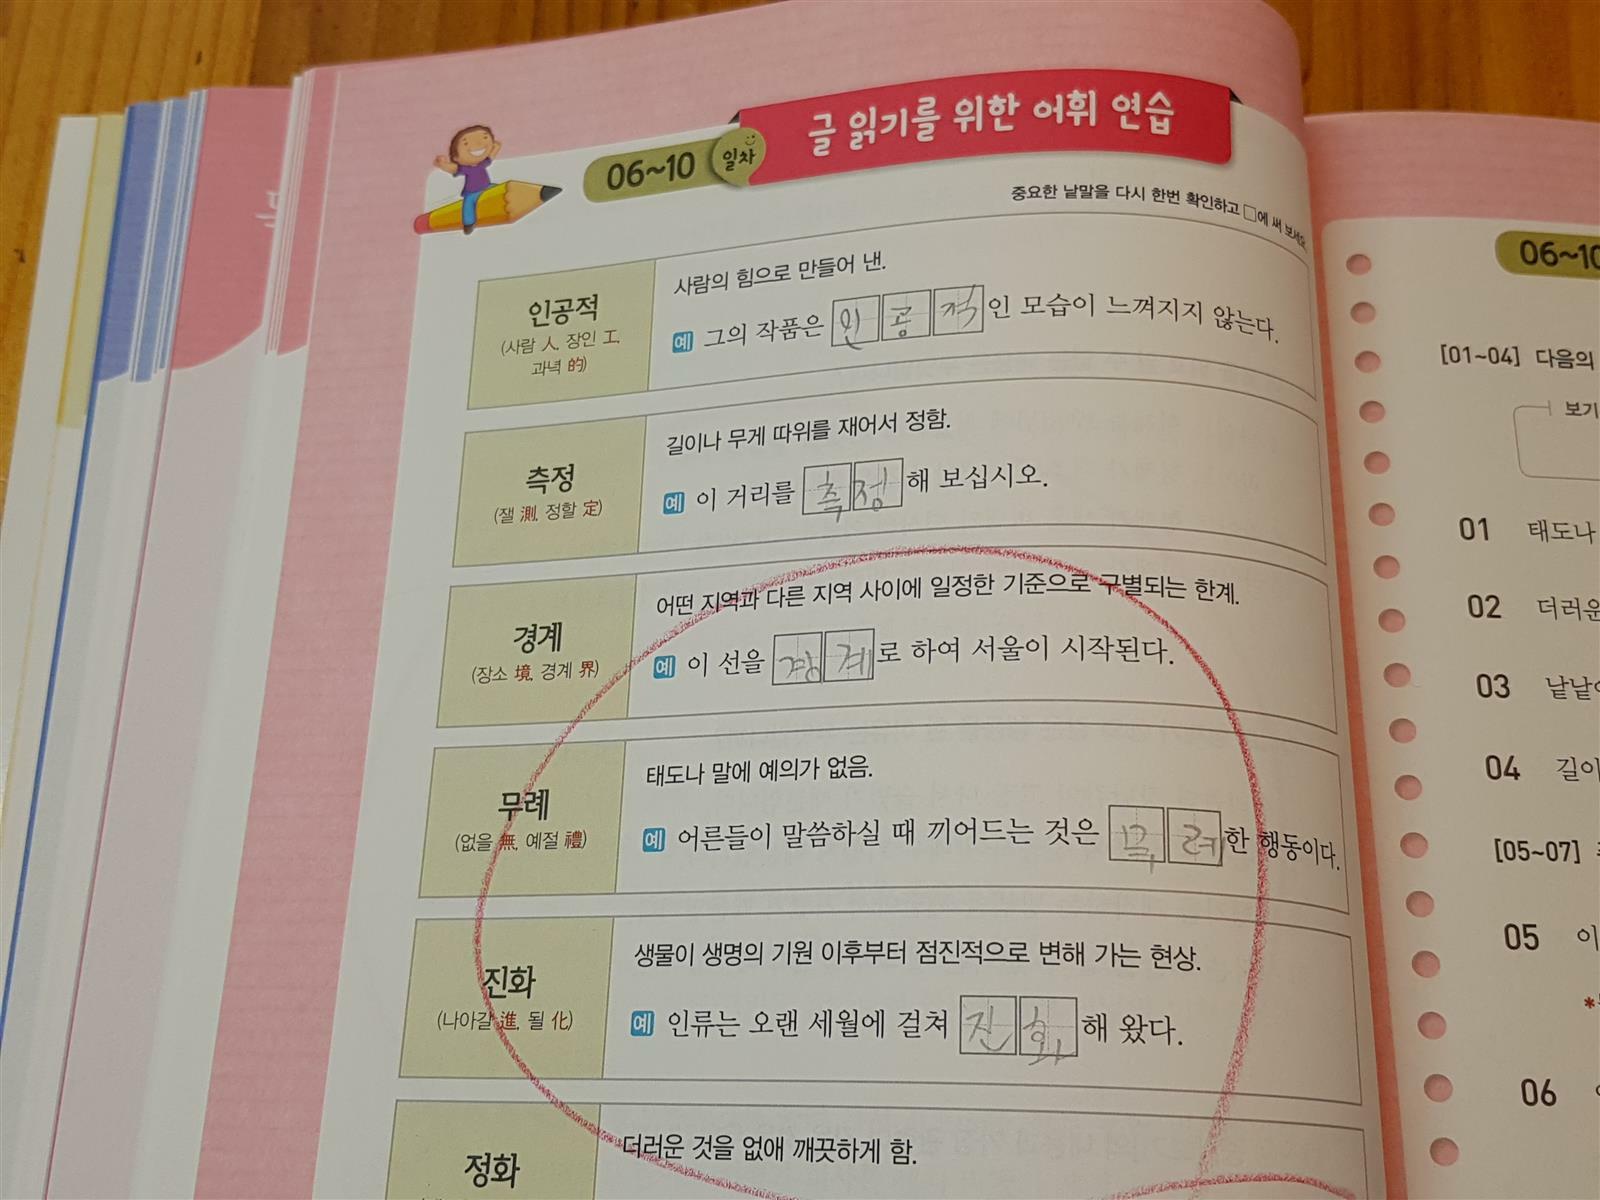 글 읽기를 위한 어휘 연습
06~10 일차
중요한 낱말을 다시 한번 확인하고 □에 써 보세요.
인공적
(사람 人, 장인 工,
과녁 的)
사람의 힘으로 만들어 낸.
예 그의 작품은 인공적인 모습이 느껴지지 않는다.
측정
(잴 測, 정할 定)
길이나 무게 따위를 재어서 정함.
예 이 거리를 측정해 보십시오.
경계
(장소 境, 경계 界)
어떤 지역과 다른 지역 사이에 일정한 기준으로 구별되는 한계.
예 이 선을 경계로 하여 서울이 시작된다.
무례
(없을 無, 예절 禮)
태도나 말에 예의가 없음.
예 어른들이 말씀하실 때 끼어드는 것은 한 행동이다.
진화
(나아갈 進, 될 化)
생물이 생명의 기원 이후부터 점진적으로 변해 가는 현상.
예 인류는 오랜 세월에 걸쳐 진화해 왔다.
정화
더러운 것을 없애 깨끗하게 함.
06~10
[01~04] 다음의
보기
01 태도나
02 더러운
03 낱낱
04 길이
[05~07]
05 이
06